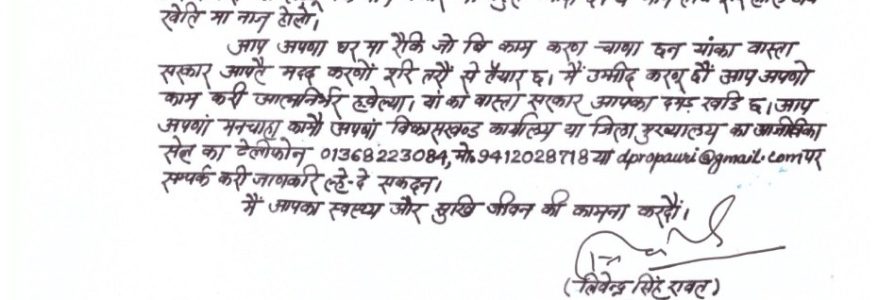 खेति मा नाज होलो।
आप अपणा घर मा रैकि जो बि काम करण चाणा छन यांका वास्ता
सरकार आपतै मदद करणौं हरि तरौं से तैयार छ। मैं उम्मीद करणू छौं आप अपणो
काम करी आत्मनिर्भर ह्वेल्या। यां का वास्ता सरकार आपका दगड़ खडि छ। आप
अपणां मनचाहा कामौ अपणां विकासखण्ड कार्यालय या जिला मुख्यालय का आजीविका
सेल का टेलीफोन 01368223084, मो० 9412028718 या dpropauri@gmail.com पर
सम्पर्क करी जाणकरि ल्हे-दे सकदन।
मैं आपका स्वस्थ्य और सुखि जीवन की कामना करदौं।
(त्रिवेन्द्र सिंह रावत)